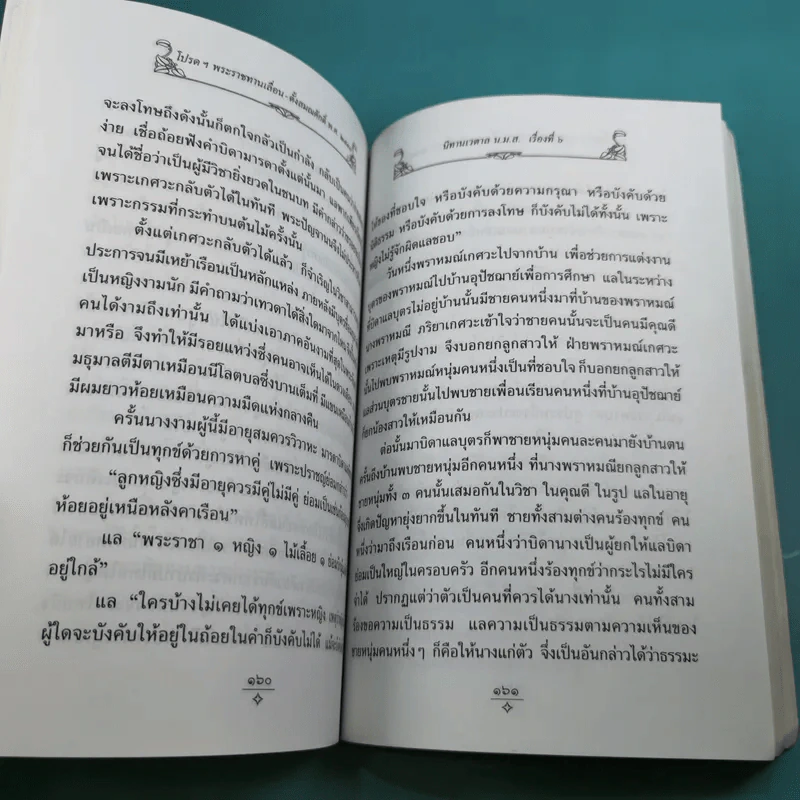 โปรด ฯ พระราชทานเลื่อน-ตั้งสมณศักดิ์ พ.ศ.
จะลงโทษถึงดังนั้นก็ตกใจกลัวเป็นกำลัง กลับเป็น
ง่าย เชื่อถ้อยฟังคำบิดามารดาตั้งแต่นั้นมา
จนได้ชื่อว่าเป็นผู้มีวิชายิ่งยวดในชนบท มีคำกล่าว
เพราะเกศวะกลับตัวได้ในทันที พระปัญจานจึง
เพราะกรรมที่กระทำบนต้นไม้ครั้งนั้น
ตั้งแต่เกศวะกลับตัวได้แล้ว ก็จำเริญใน
ประการจนมีเหย้าเรือนเป็นหลักแหล่ง ภายหลังมีบุตร
เป็นหญิงงามนัก มีคำถามว่าเทวดาได้สิ่งใดมาจาก
คนได้งามถึงเท่านั้น ได้แบ่งเอาภาคอันงามที่สุด
มาหรือ จึงทำให้มีรอยแหว่งซึ่งคนอาจเห็นได้ใน
มธุมาลตีมีตาเหมือนนีโลตบลซึ่งบานเต็มที่ มีแขน
มีผมยาวห้อยเหมือนความมืดแห่งกลางคืน
ครั้นนางงามผู้นี้มีอายุสมควรวิวาหะ มารดา
ก็ช่วยกันเป็นทุกข์ด้วยการหาคู่ เพราะปราชญ์ย่อมกล่าว
“ลูกหญิงซึ่งมีอายุควรมีคู่ไม่มีคู่ ย่อมเป็นเช่น
ห้อยอยู่เหนือหลังคาเรือน”
แล “พระราชา ๑ หญิง ๑ ไม้เลื้อย ๑ ย่อม
อยู่ใกล้”
แล “ใครบ้างไม่เคยได้ทุกข์เพราะหญิง
ผู้ใดจะบังคับให้อยู่ในถ้อยในคำก็บังคับไม่ได้
๑๖๐
นิทานเวตาล น.ม.ส. เรื่องที่ ๖
ให้ของที่ชอบใจ หรือบังคับด้วยความกรุณา หรือบังคับด้วย
หรือบังคับด้วยการลงโทษ ก็บังคับไม่ได้ทั้งนั้น เพราะ
หญิงไม่รู้จักผิดแลชอบ”
วันหนึ่งพราหมณ์เกศวะไปจากบ้าน เพื่อช่วยการแต่งงาน
บุตรของพราหมณ์ไปบ้านอุปัชฌาย์เพื่อการศึกษา แลในระหว่าง
ที่บิดาแลบุตรไม่อยู่บ้านนั้นมีชายคนหนึ่งมาที่บ้านของพราหมณ์
นางพราหมณี ภริยาเกศวะเข้าใจว่าชายคนนั้นจะเป็นคนมีคุณดี
เพราะเหตุมีรูปงาม จึงบอกยกลูกสาวให้ ฝ่ายพราหมณ์เกศวะ
นั้นไปพบพราหมณ์หนุ่มคนหนึ่งเป็นที่ชอบใจ ก็บอกยกลูกสาวให้
แลส่วนบุตรชายนั้นไปพบชายเพื่อนเรียนคนหนึ่งที่บ้านอุปัชฌาย์
ก็ยกน้องสาวให้เหมือนกัน
ต่อนั้นมาบิดาแลบุตรก็พาชายหนุ่มคนละคนมายังบ้านตน
ครั้นถึงบ้านพบชายหนุ่มอีกคนหนึ่ง ที่นางพราหมณียกลูกสาวให้
ชายหนุ่มทั้ง ๓ คนนั้นเสมอกันในวิชา ในคุณดี ในรูป แลในอายุ
จึงเกิดปัญหายุ่งยากขึ้นในทันที ชายทั้งสามต่างคนร้องทุกข์ คน
หนึ่งว่ามาถึงเรือนก่อน คนหนึ่งว่าบิดานางเป็นผู้ยกให้แลบิดา
ย่อมเป็นใหญ่ในครอบครัว อีกคนหนึ่งร้องทุกข์ว่ากระไรไม่มีใคร
จำได้ ปรากฏแต่ว่าตัวเป็นคนที่ควรได้นางเท่านั้น คนทั้งสาม
ร้องขอความเป็นธรรม แลความเป็นธรรมตามความเห็นของ
ชายหนุ่มคนหนึ่งๆ ก็คือให้นางแก่ตัว จึ่งเป็นอันกล่าวได้ว่าธรรมะ
๑๖๑